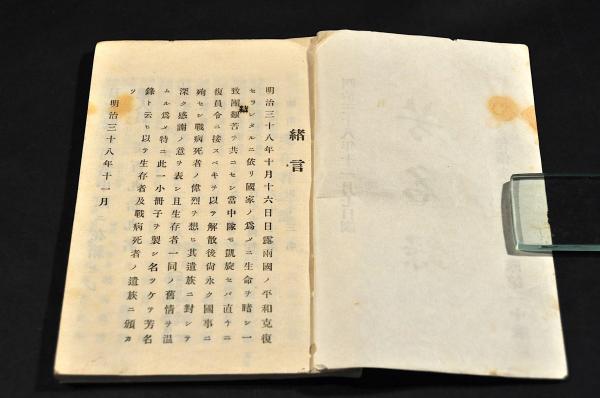 緒言
明治三十八年十月十六日日露兩國ノ平和克復
セラレタルニ依リ國家ノ爲メニ生命ヲ賭シ一
致團結艱苦ヲ共ニセシ當中隊モ凱旋セバ直チニ
復員令ニ接スベキヲ以テ解散後尙永ク國事ニ
殉セシ戰病死者ノ偉烈ヲ想ヒ其遺族ニ對シテ
深ク感謝ノ意ヲ表シ且生存者一同ノ舊情ヲ温
ムル爲メ特ニ此一小冊子ヲ製シ名ツケテ芳名
錄ト云ヒ以テ生存者及戰病死者ノ遺族ニ頒カ
ツ
明治三十八年十一月